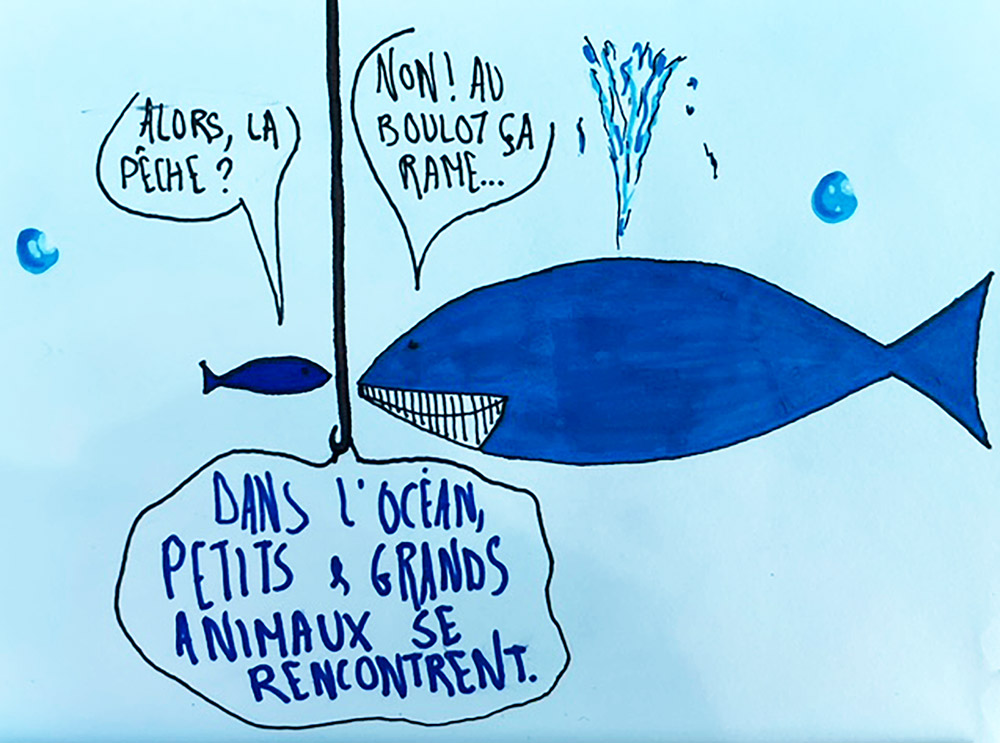 ALORS, LA
PÊCHE ?
NON ! AU
BOULOT ÇA
RAME...
DANS L'OCÉAN,
PETITS & GRANDS
ANIMAUX SE
RENCONTRENT.